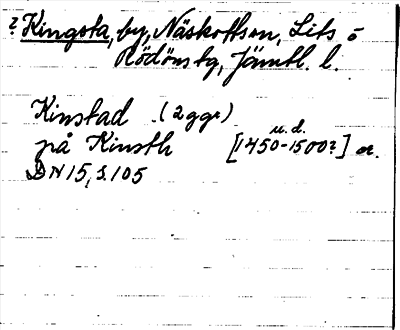 ? Kingsta, by, Näskottsn, Lits o
Rödöns tg, Jämtl. l.
Kinstad (2 ggr)
u. d.
på Kinsth [1450-1500?] or.
DN 15, s. 105